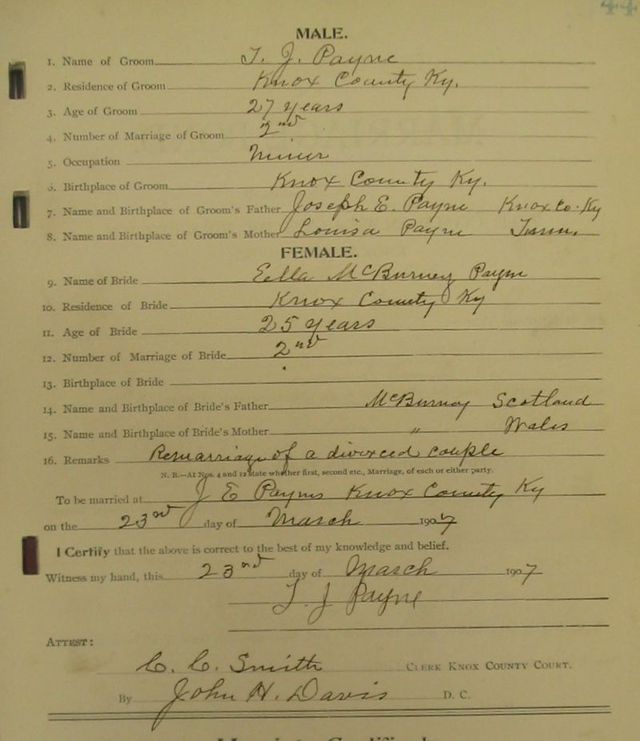 44
MALE.
1. Name of Groom T. J. Payne
2. Residence of Groom Knox County Ky.
3. Age of Groom 27 years
4. Number of Marriage of Groom 2nd
5. Occupation Miner
6. Birthplace of Groom Knox County Ky.
7. Name and Birthplace of Groom's Father Joseph E. Payne Knox Co. Ky
8. Name and Birthplace of Groom's Mother Louisa Payne Tenn.
FEMALE.
9. Name of Bride Ella McBurney Payne
10. Residence of Bride Knox County Ky
11. Age of Bride 25 years
12. Number of Marriage of Bride 2nd
13. Birthplace of Bride
14. Name and Birthplace of Bride's Father McBurney Scotland
15. Name and Birthplace of Bride's Mother " Wales
16. Remarks Remarriage of a divorced couple
N. B.—At Nos. 4 and 12 state whether first, second etc., Marriage, of each or either party.
To be married at J E Paynes Knox County Ky
on the 23rd day of March 1907
I Certify that the above is correct to the best of my knowledge and belief.
Witness my hand, this 23nd day of March 1907
T. J Payne
ATTEST:
C. C. Smith CLERK KNOX COUNTY COURT.
By John H. Davis D. C.